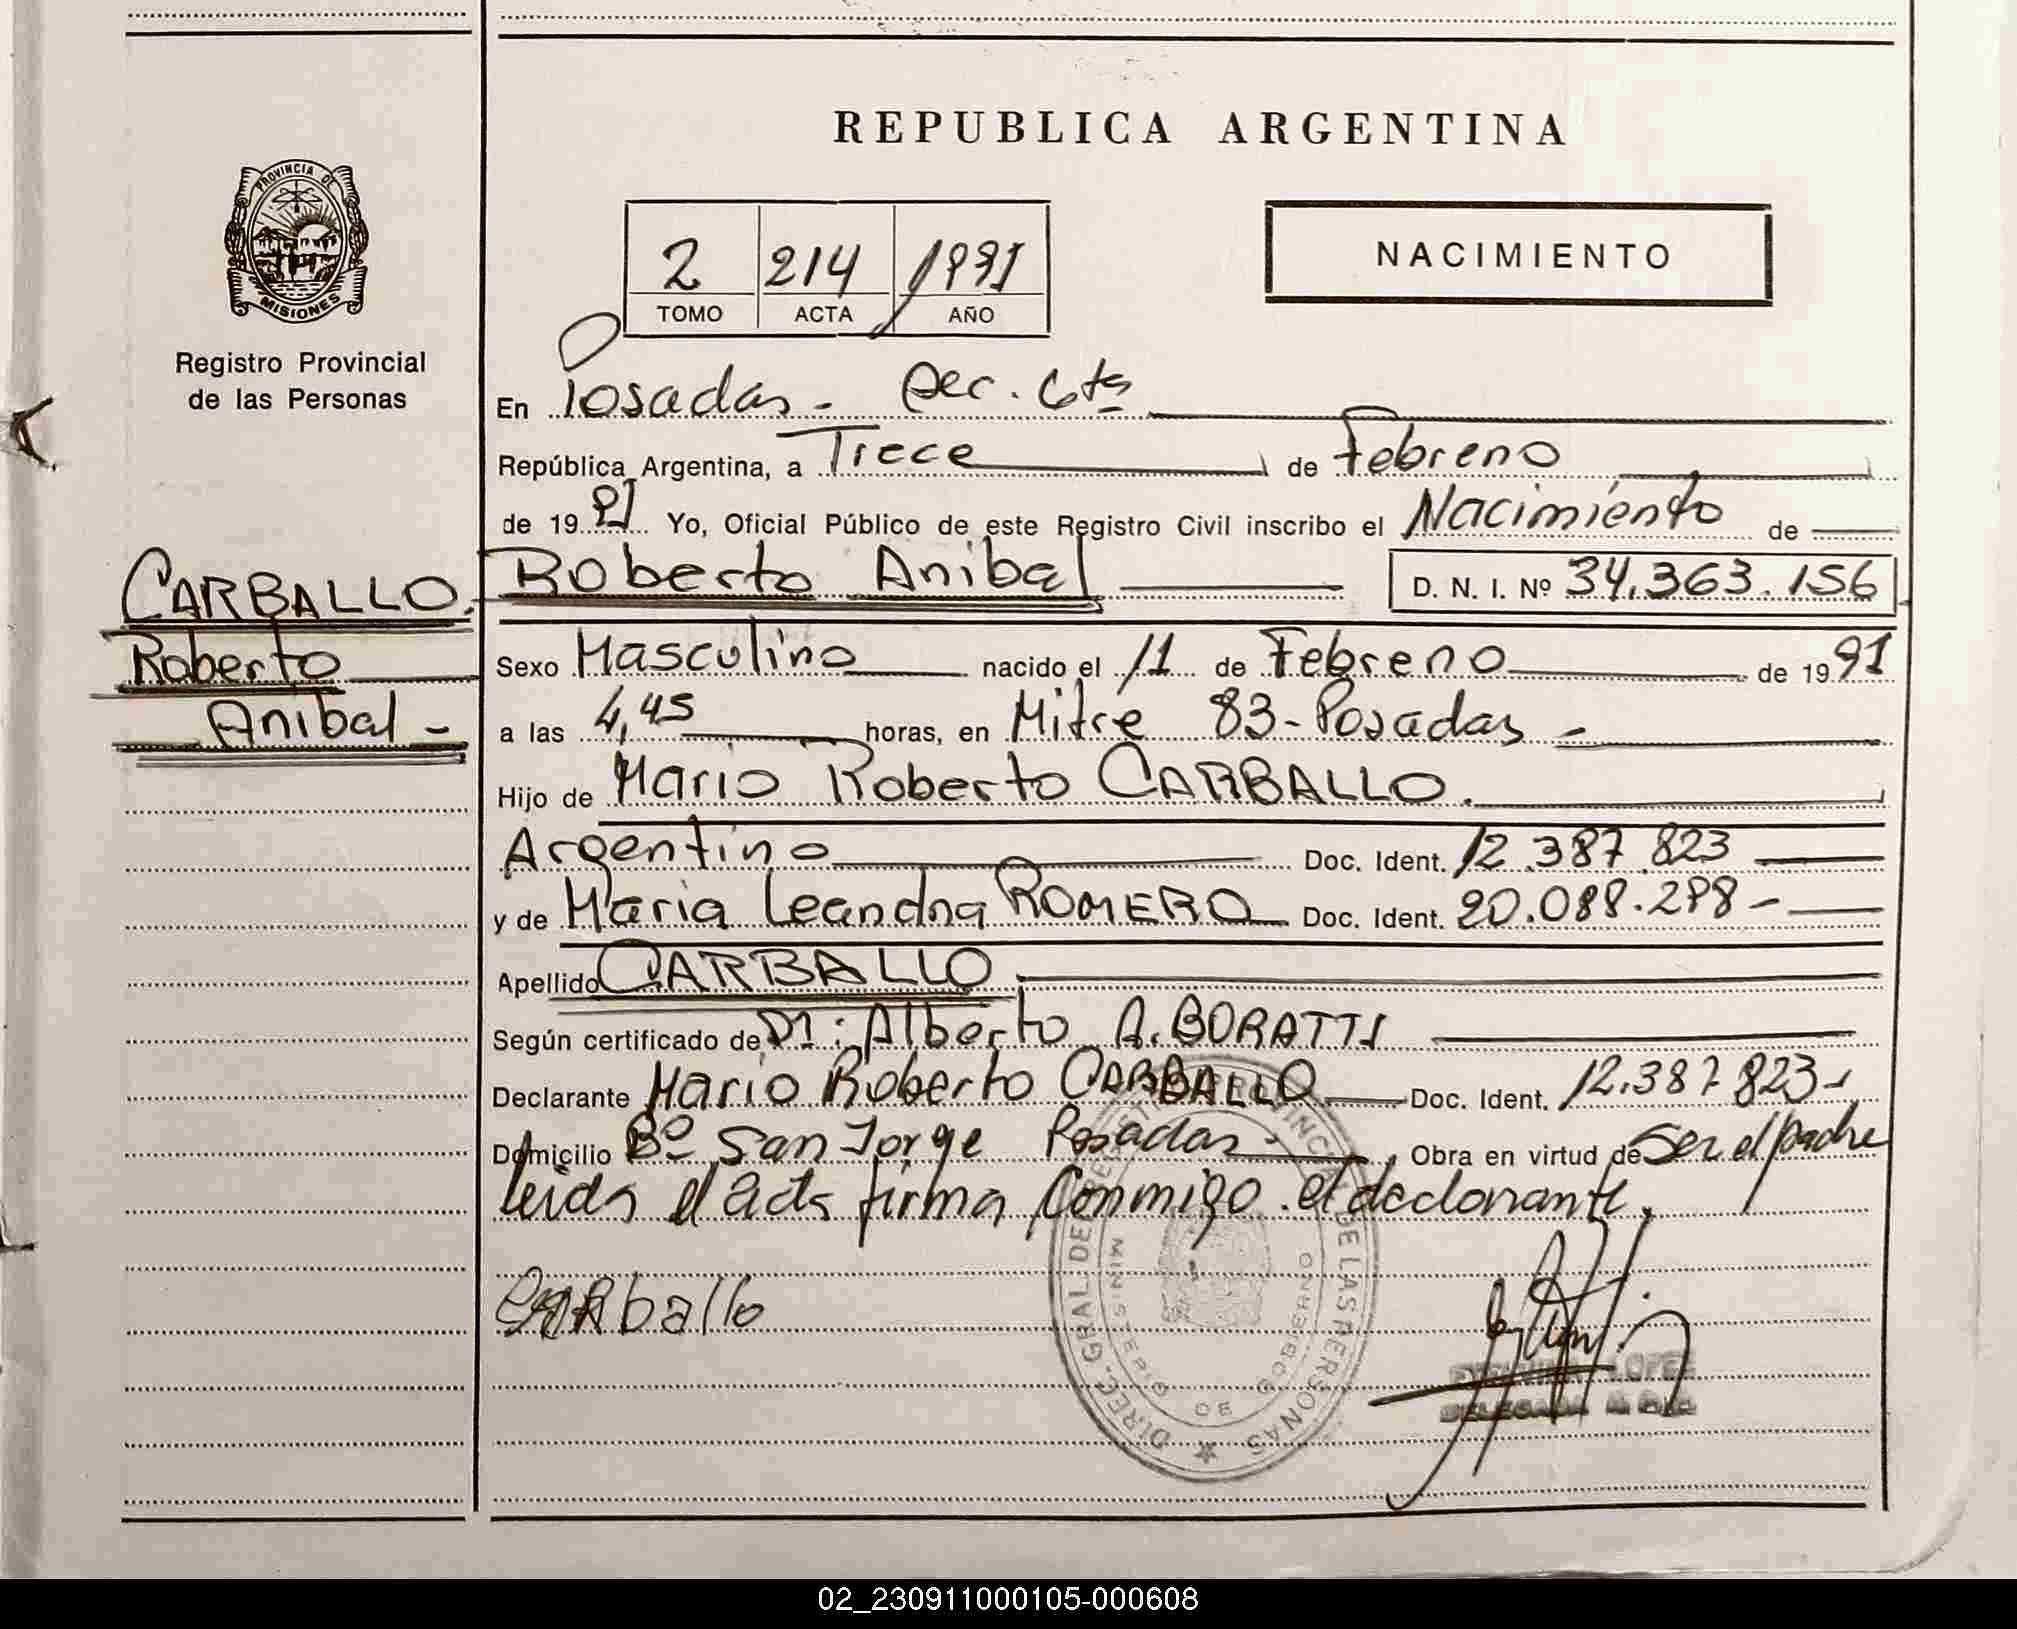 REPUBLICA ARGENTINA
PROVINCIA DE
MISIONES
Registro Provincial
de las Personas
2 214 1991
TOMO ACTA AÑO
NACIMIENTO
En Posadas - Sec. 6ta
República Argentina, a Trece de Febrero
de 1991 Yo, Oficial Público de este Registro Civil inscribo el Nacimiento de
CARBALLO.
Roberto
Anibal -
Roberto Anibal D. N. I. Nº 34.363.156
Sexo Masculino nacido el 11 de Febrero de 1991
a las 4,45 horas, en Mitre 83 - Posadas -
Hijo de Mario Roberto CARBALLO.
Argentino Doc. Ident. 12.387.823
y de Maria Leandra ROMERO Doc. Ident. 20.088.298 -
Apellido CARBALLO
Según certificado de Dr: Alberto A. BORATTI
Declarante Mario Roberto CARBALLO Doc. Ident. 12.387.823 -
Domicilio Bº San Jorge Posadas - Obra en virtud de Ser el padre
leida el acta firma conmigo el declarante.
CARballo
DIREC. GRAL. DEL REGISTRO PROVINCIAL DE LAS PERSONAS
MINISTERIO DE GOBIERNO
LOPEZ
DELEGADA
02_230911000105-000608